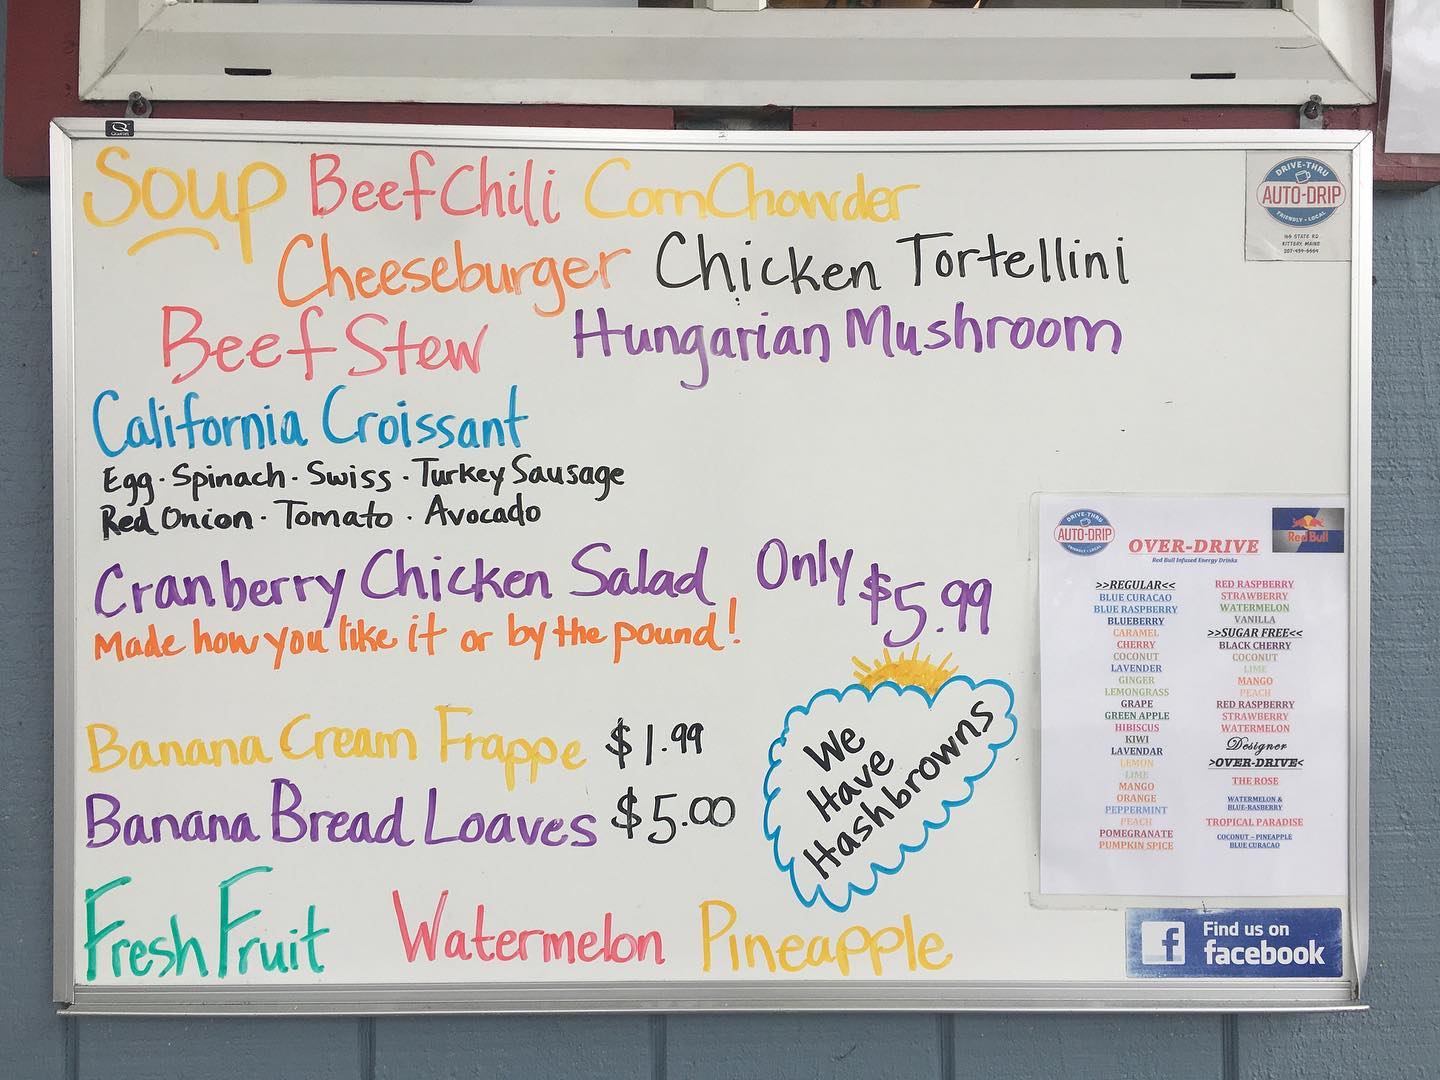 Soup Beef Chili Corn Chowder
Cheeseburger Chicken Tortellini
Beef Stew Hungarian Mushroom
California Croissant
Egg · Spinach · Swiss · Turkey Sausage
Red Onion · Tomato · Avocado
Cranberry Chicken Salad Only $5.99
Made how you like it or by the pound!
Banana Cream Frappe $1.99
Banana Bread Loaves $5.00
We
Have
Hashbrowns
Fresh Fruit Watermelon Pineapple
DRIVE-THRU
AUTO-DRIP
FRIENDLY • LOCAL
KITTERY, MAINE
DRIVE-THRU
AUTO-DRIP
FRIENDLY • LOCAL
Red Bull
OVER-DRIVE
Red Bull Infused Energy Drinks
>>REGULAR<<
BLUE CURACAO
BLUE RASPBERRY
BLUEBERRY
CARAMEL
CHERRY
COCONUT
LAVENDER
GINGER
LEMONGRASS
GRAPE
GREEN APPLE
HIBISCUS
KIWI
LAVENDAR
LEMON
LIME
MANGO
ORANGE
PEPPERMINT
PEACH
POMEGRANATE
PUMPKIN SPICE
RED RASPBERRY
STRAWBERRY
WATERMELON
VANILLA
>>SUGAR FREE<<
BLACK CHERRY
COCONUT
LIME
MANGO
PEACH
RED RASPBERRY
STRAWBERRY
WATERMELON
Designer
>OVER-DRIVE<
THE ROSE
WATERMELON &
BLUE-RASBERRY
TROPICAL PARADISE
COCONUT – PINEAPPLE
BLUE CURACAO
Find us on
facebook